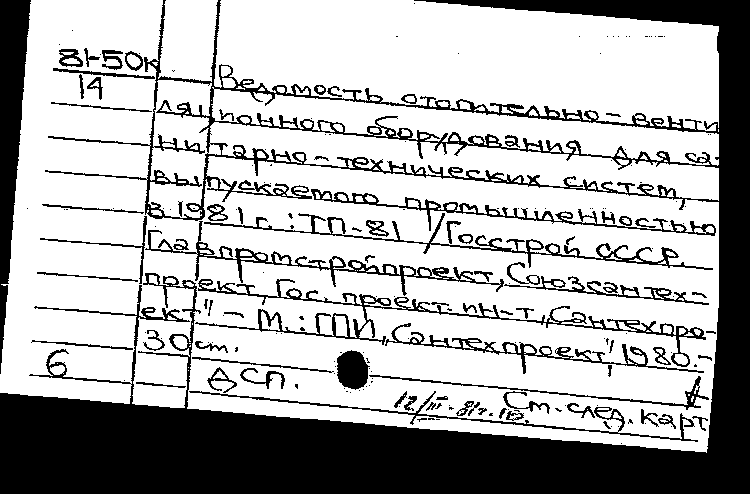 81-50к
14
Ведомость отопительно-венти
ляционного оборудования для са-
нитарно-технических систем,
выпускаемого промышленностью
в 1981 г. : ТП-81 / Госстрой СССР.
Главпромстройпроект, Союзсантех-
проект, Гос. проект. ин-т „Сантехпро-
ект" - М. : ГПИ „Сантехпроект", 1980.-
30 ст.
6
ДСП.
12/III-81г.
См. след. карт